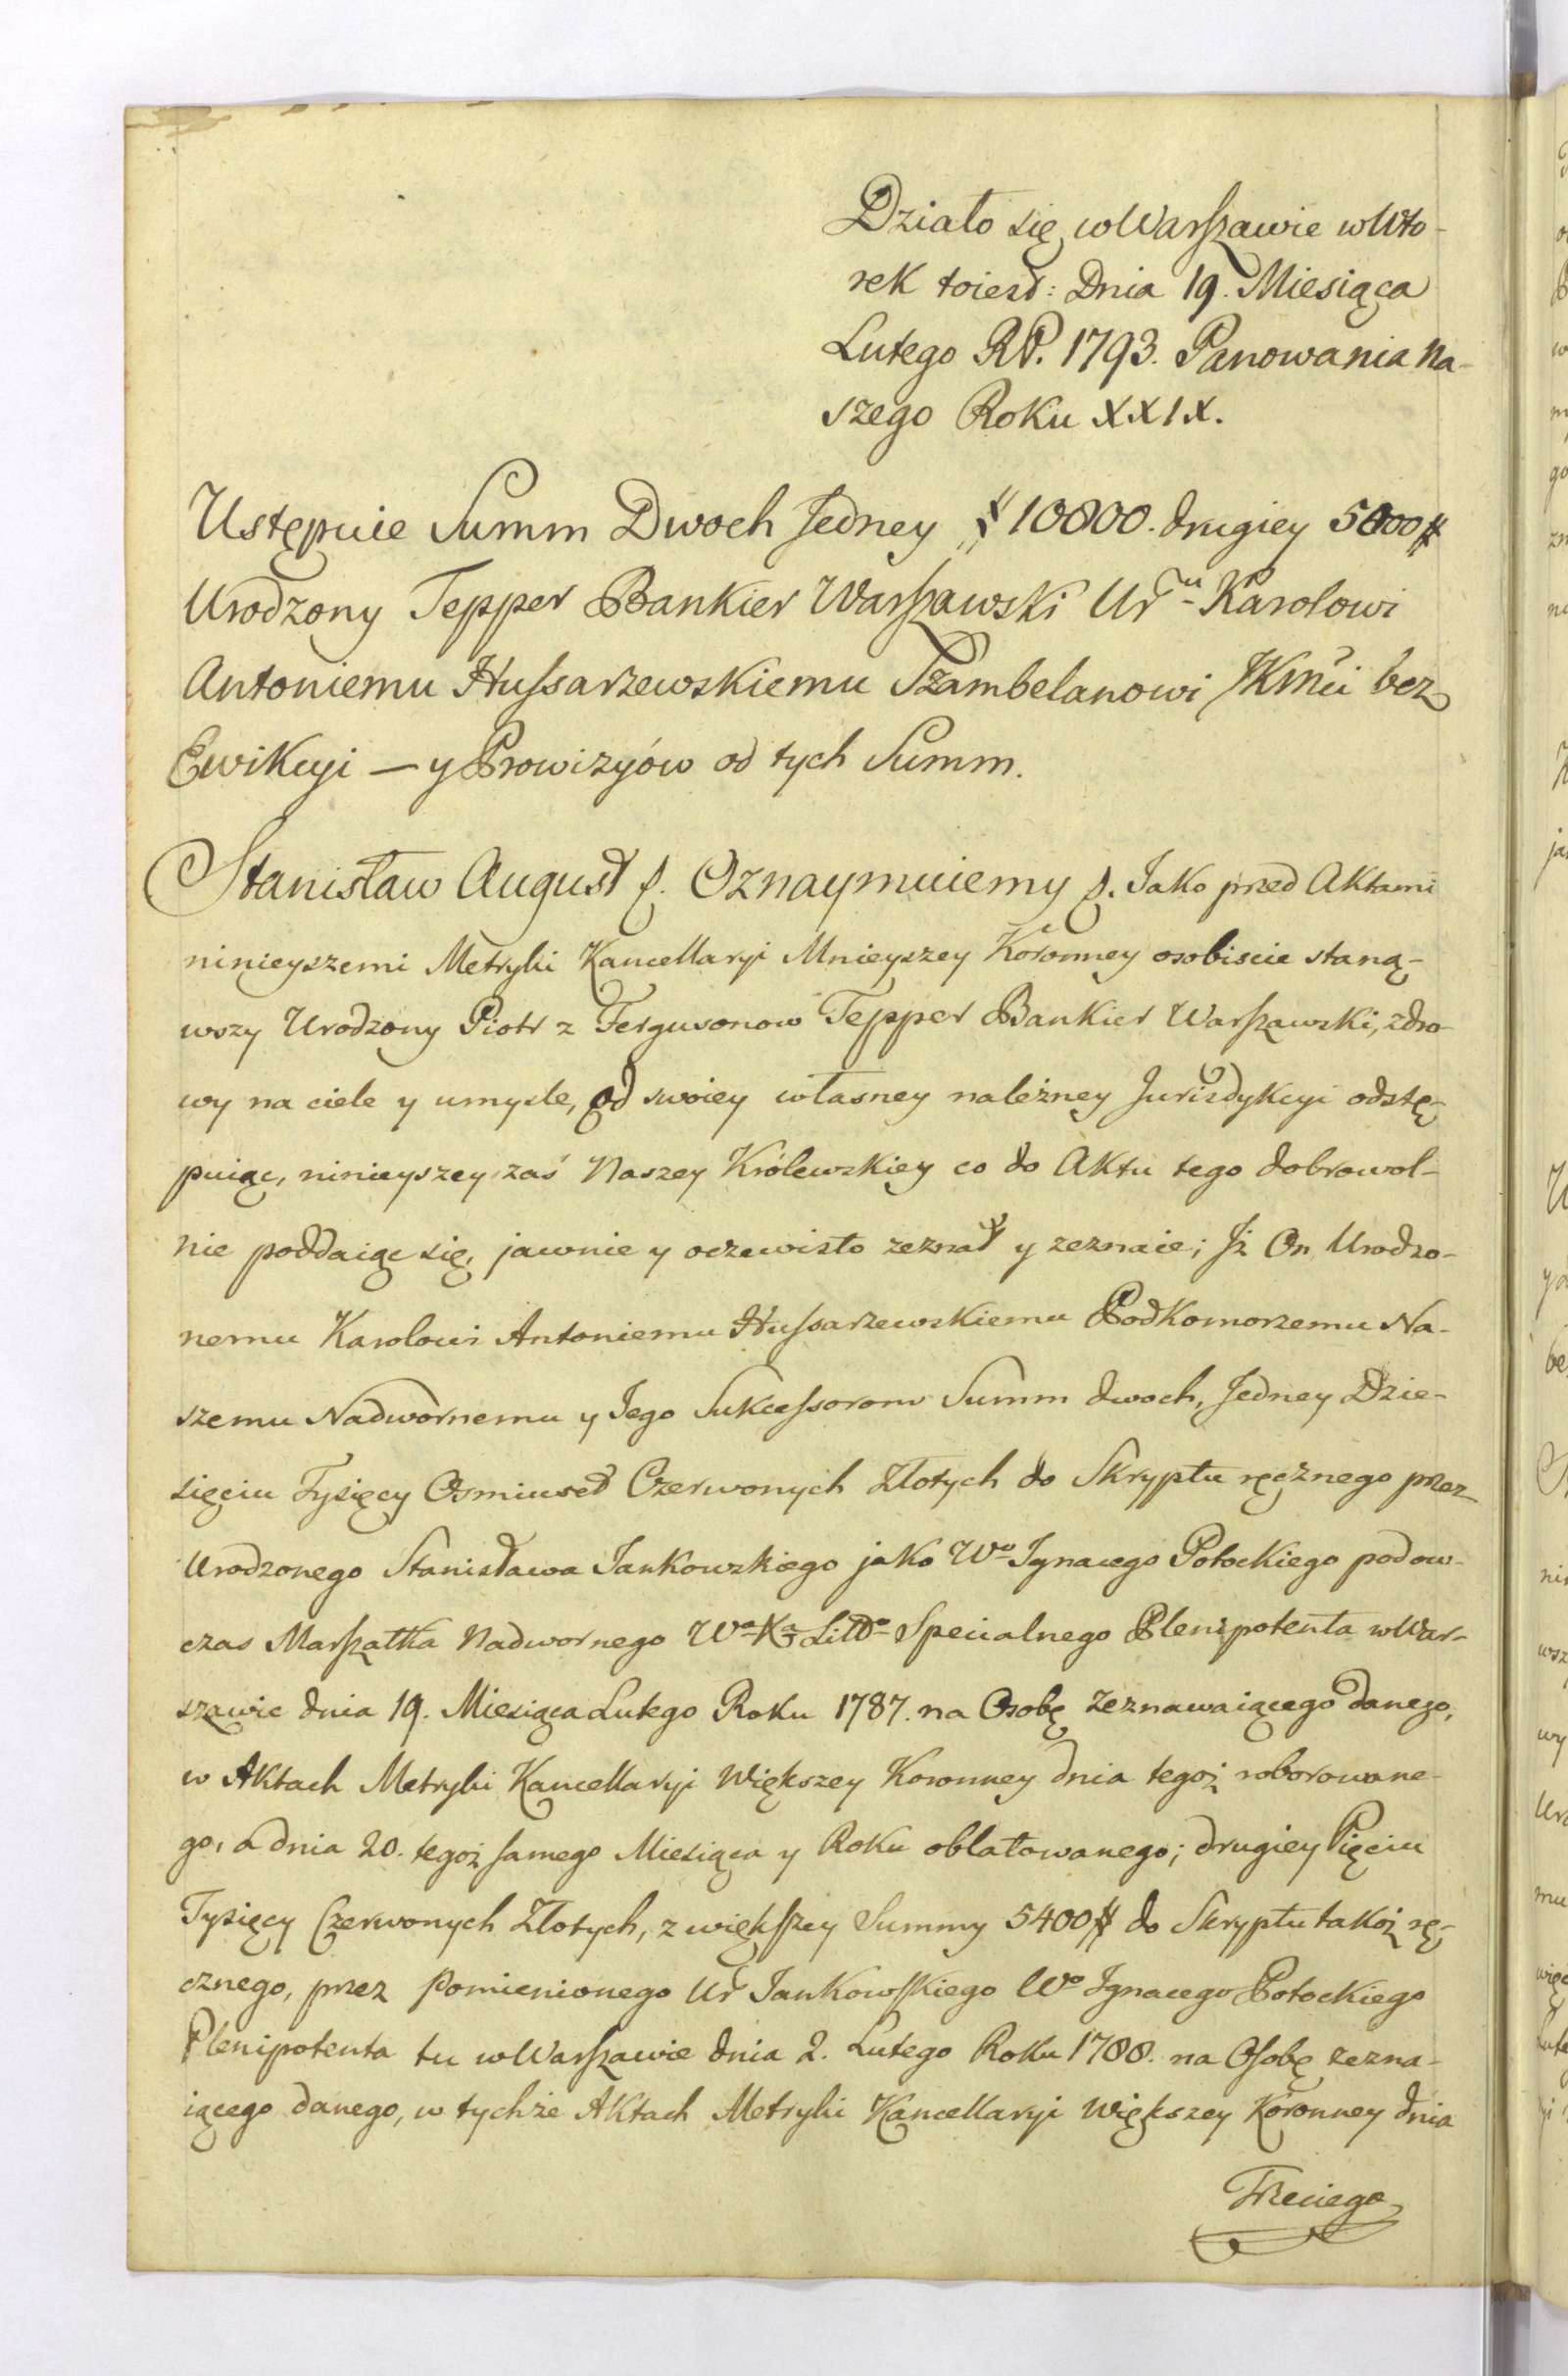 Działo się w Warszawie w Wto-
rek toiest: Dnia 19. Miesiąca
Lutego RP. 1793. Panowania Na-
szego Roku XXIX.
Ustępuie Summ Dwoch Jedney # 10800. drugiey 5000 #
Urodzony Tepper Bankier Warszawski Ur^u Karolowi
Antoniemu Hussarzewskiemu Szambelanowi JKMci bez
Ewikcyi — y Prowizyów od tych Summ.
Stanisław August &. Oznaymuiemy &. Jako przed Aktami
ninieyszemi Metryki Kancellaryi Mnieyszey Koronney osobiscie staną-
wszy Urodzony Piotr z Fergusonow Tepper Bankier Warszawski, zdro-
wy na ciele y umysle, od swoiey własney należney Jurisdykcyi odstę-
puiąc, ninieyszey zaś Naszey Królewskiey co do Aktu tego dobrowol-
nie poddaiąc się, jawnie y oczewisto zeznał y zeznaie; Jż On Urodzo-
nemu Karolowi Antoniemu Hussarzewskiemu Podkomorzemu Na-
szemu Nadwornemu y Jego Sukcessorom Summ dwoch, Jedney Dzie-
sięciu Tysięcy Osmiuset Czerwonych Złotych do Skryptu ręcznego przez
Urodzonego Stanisława Jankowskiego jako W^o Jgnacego Potockiego podow-
czas Marszałka Nadwornego W^o X^a Litt^o Specialnego Plenipotenta w War-
szawie dnia 19. Miesiąca Lutego Roku 1787. na Osobę zeznawaiącego danego,
w Aktach Metryki Kancellaryi Większey Koronney dnia tegoż roborowane-
go, a dnia 20. tegoż samego Miesiąca y Roku oblatowanego; drugiey Pięciu
Tysięcy Czerwonych Złotych, z większey Summy 5400 # do Skryptu takoż rę-
cznego, przez Pomienionego Ur Jankowskiego W^o Jgnacego Potockiego
Plenipotenta tu w Warszawie dnia 2. Lutego Roku 1788. na Osobę zezna-
iącego danego, w tychże Aktach Metryki Kancellaryi Większey Koronney dnia
Trzeciego